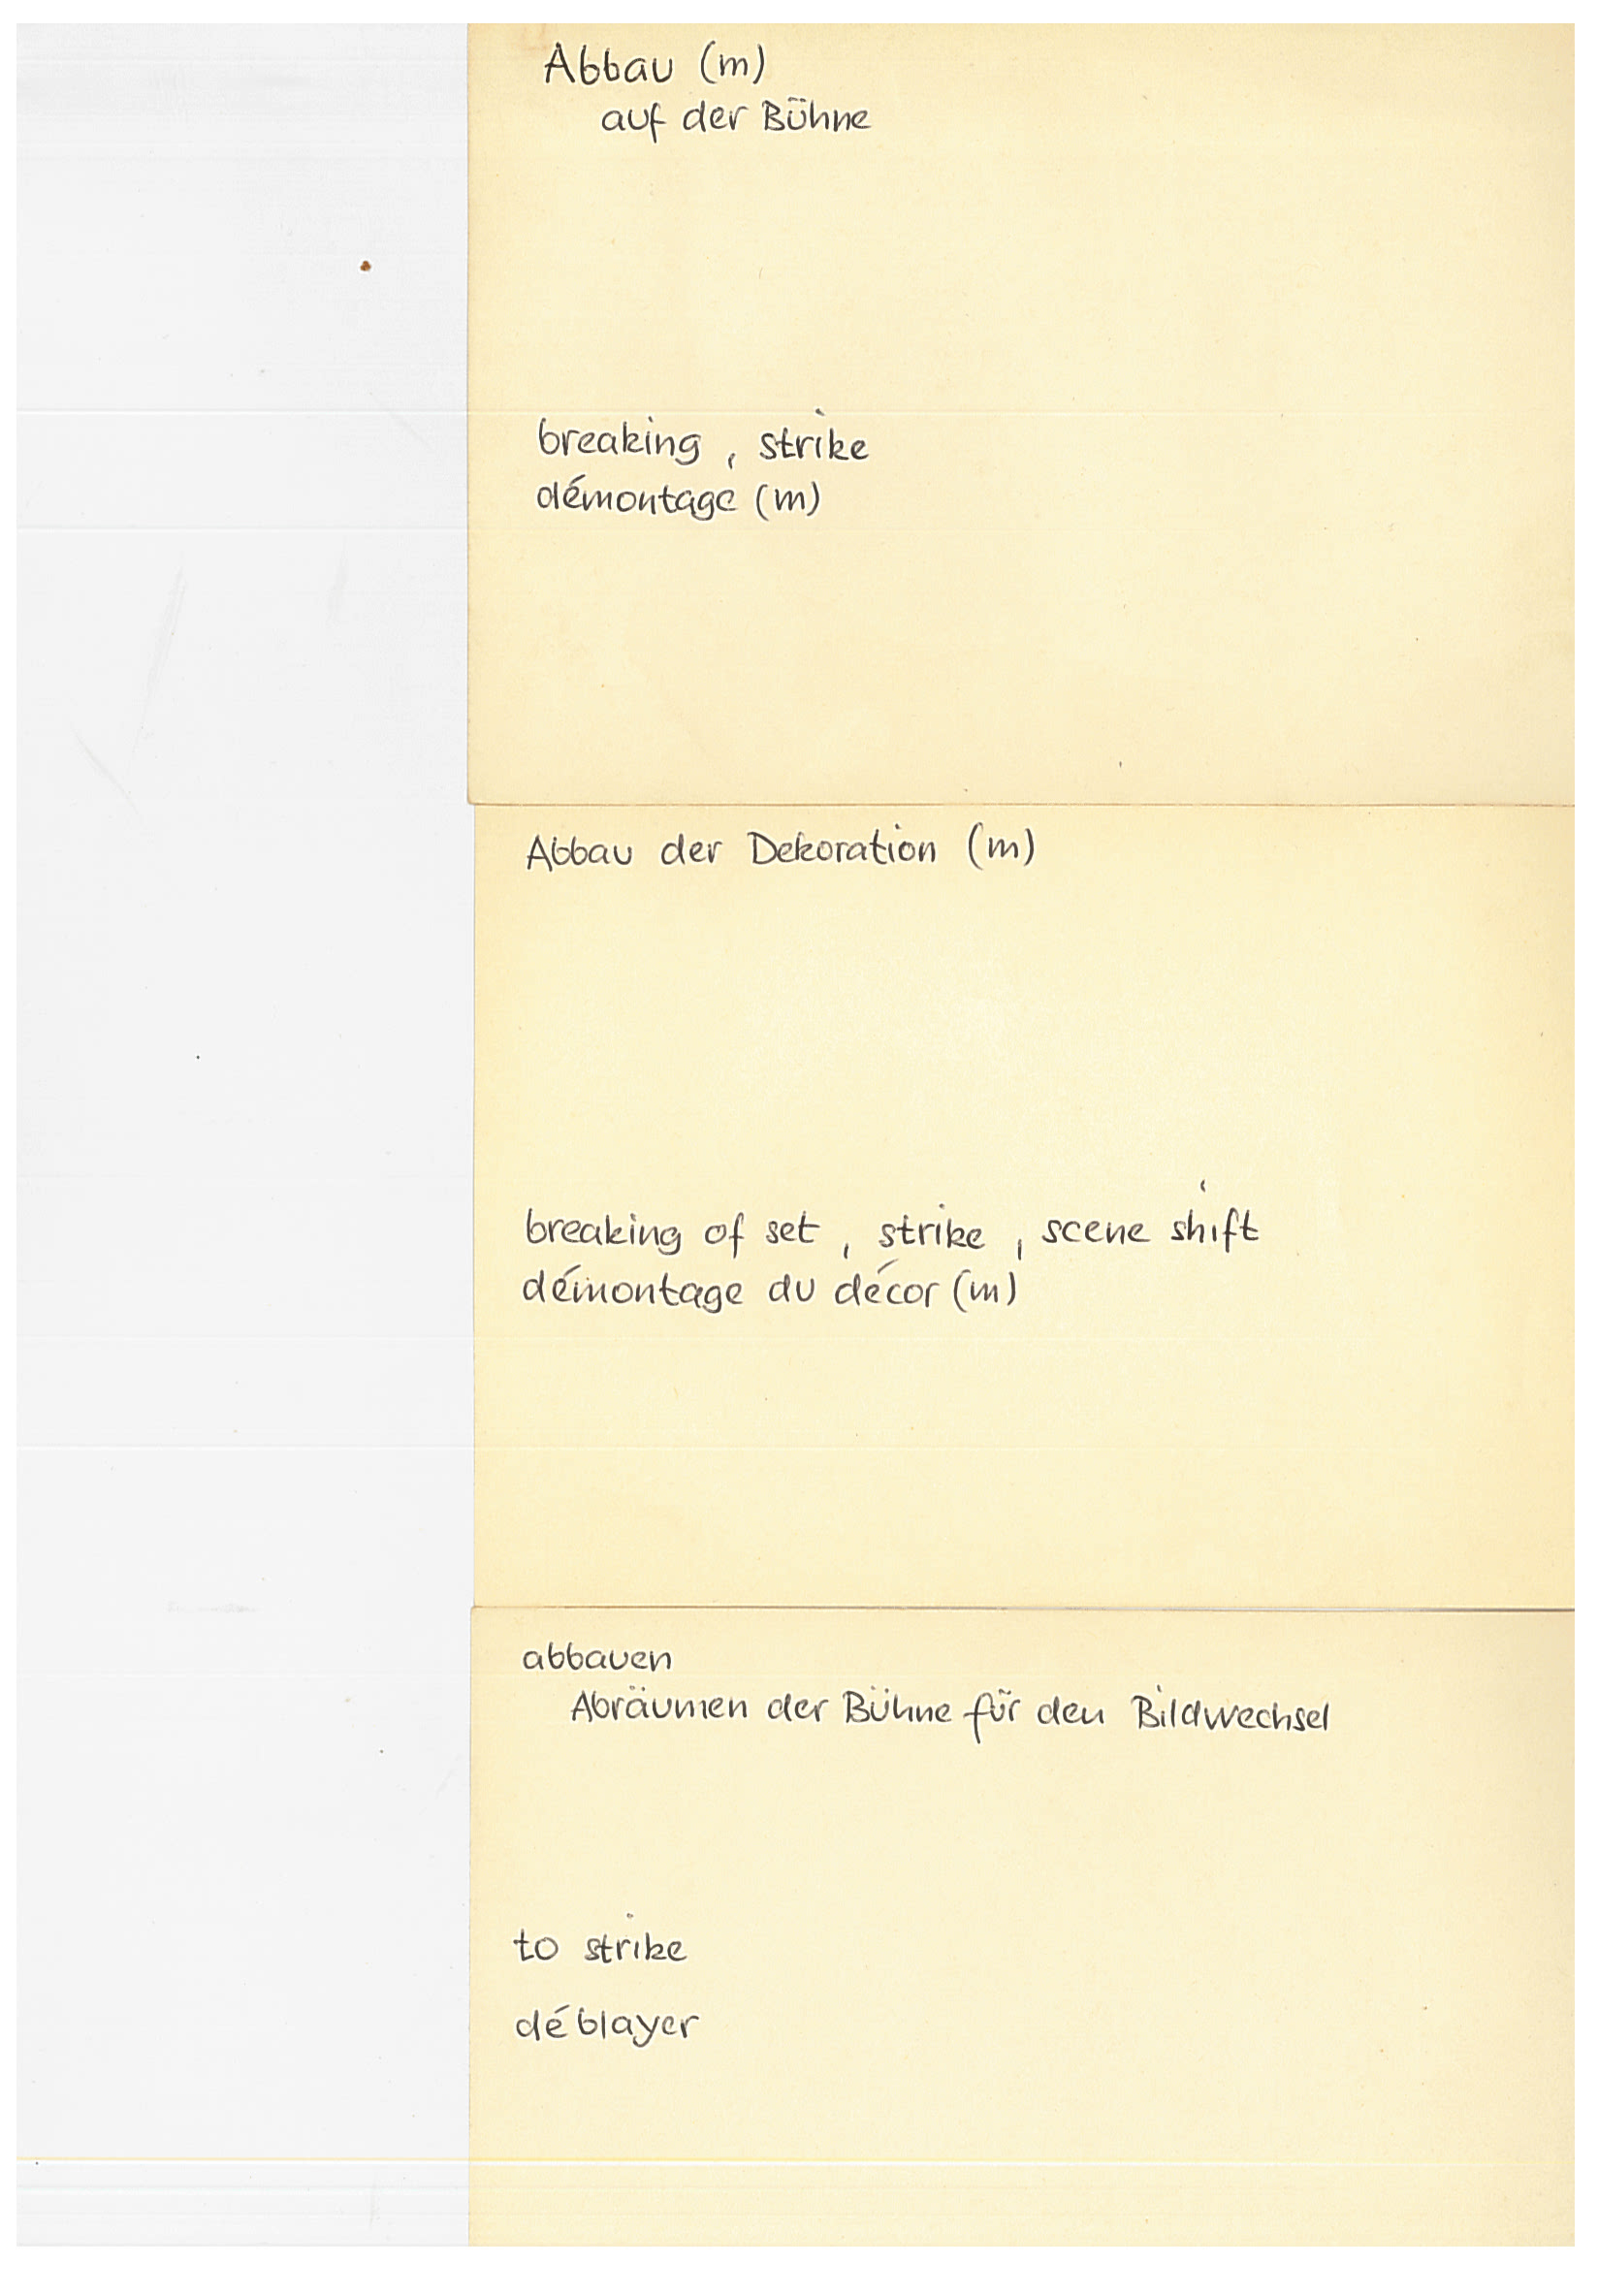 Abbau (m)
auf der Bühne
breaking, strike
démontage (m)
Abbau der Dekoration (m)
breaking of set, strike, scene shift
démontage du décor (m)
abbauen
Abräumen der Bühne für den Bildwechsel
to strike
déblayer